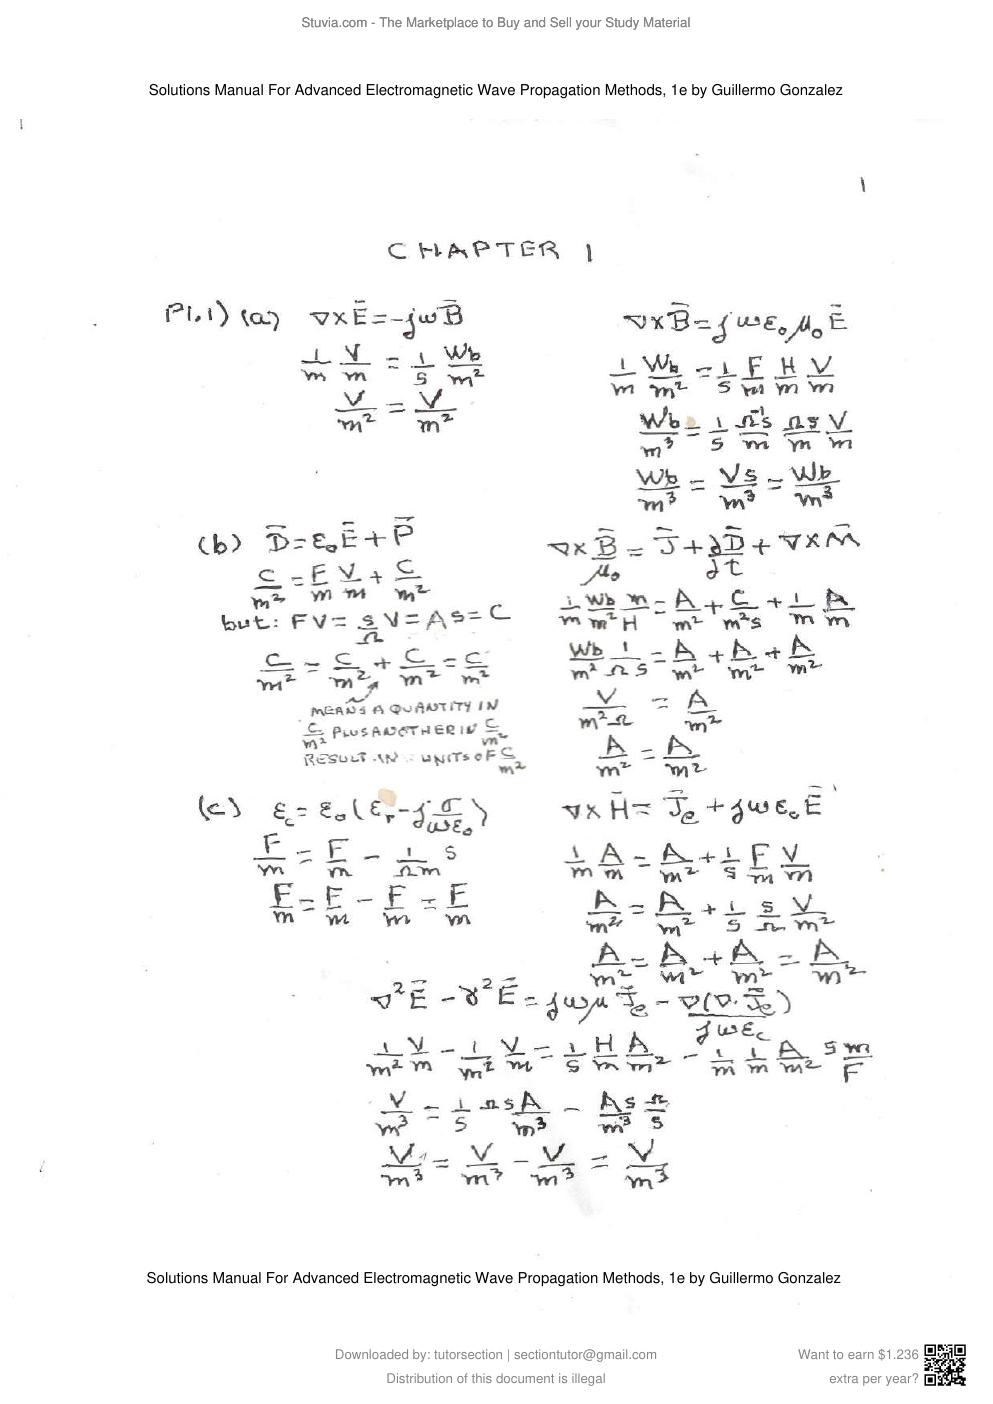 Stuvia.com - The Marketplace to Buy and Sell your Study Material
Solutions Manual For Advanced Electromagnetic Wave Propagation Methods, 1e by Guillermo Gonzalez
1
CHAPTER 1
P1.1) (a) ∇×Ē = -jωB̄
1/m V/m = 1/s Wb/m²
V/m² = V/m²
∇×B̄ = jωε₀μ₀Ē
1/m Wb/m² = 1/s F/m H/m V/m
Wb/m³ = 1/s Ω⁻¹s/m Ωs/m V/m
Wb/m³ = Vs/m³ = Wb/m³
(b) D̄ = ε₀Ē + P̄
C/m² = F/m V/m + C/m²
but: FV = s/Ω V = As = C
C/m² = C/m² + C/m² = C/m²
MEANS A QUANTITY IN
C/m² PLUS ANOTHER IN C/m²
RESULT IN UNITS OF C/m²
∇×B̄/μ₀ = J̄ + ∂D̄/∂t + ∇×M̄
1/m Wb/m² m/H = A/m² + C/m²s + 1/m A/m
Wb/m² 1/Ωs = A/m² + A/m² + A/m²
V/m²Ω = A/m²
A/m² = A/m²
(c) εc = ε₀(εr - j σ/ωε₀)
F/m = F/m - 1/Ωm s
F/m = F/m - F/m = F/m
∇×H̄ = J̄e + jωεcĒ
1/m A/m = A/m² + 1/s F/m V/m
A/m² = A/m² + 1/s s/Ω V/m²
A/m² = A/m² + A/m² = A/m²
∇²Ē - γ²Ē = jωμJ̄e - ∇(∇·J̄e)/jωεc
1/m² V/m - 1/m² V/m = 1/s H/m A/m² - 1/m 1/m A/m² s m/F
V/m³ = 1/s ΩsA/m³ - As/m³ Ω/s
V/m³ = V/m³ - V/m³ = V/m³
Solutions Manual For Advanced Electromagnetic Wave Propagation Methods, 1e by Guillermo Gonzalez
Downloaded by: tutorsection | sectiontutor@gmail.com
Distribution of this document is illegal
Want to earn $1.236
extra per year?